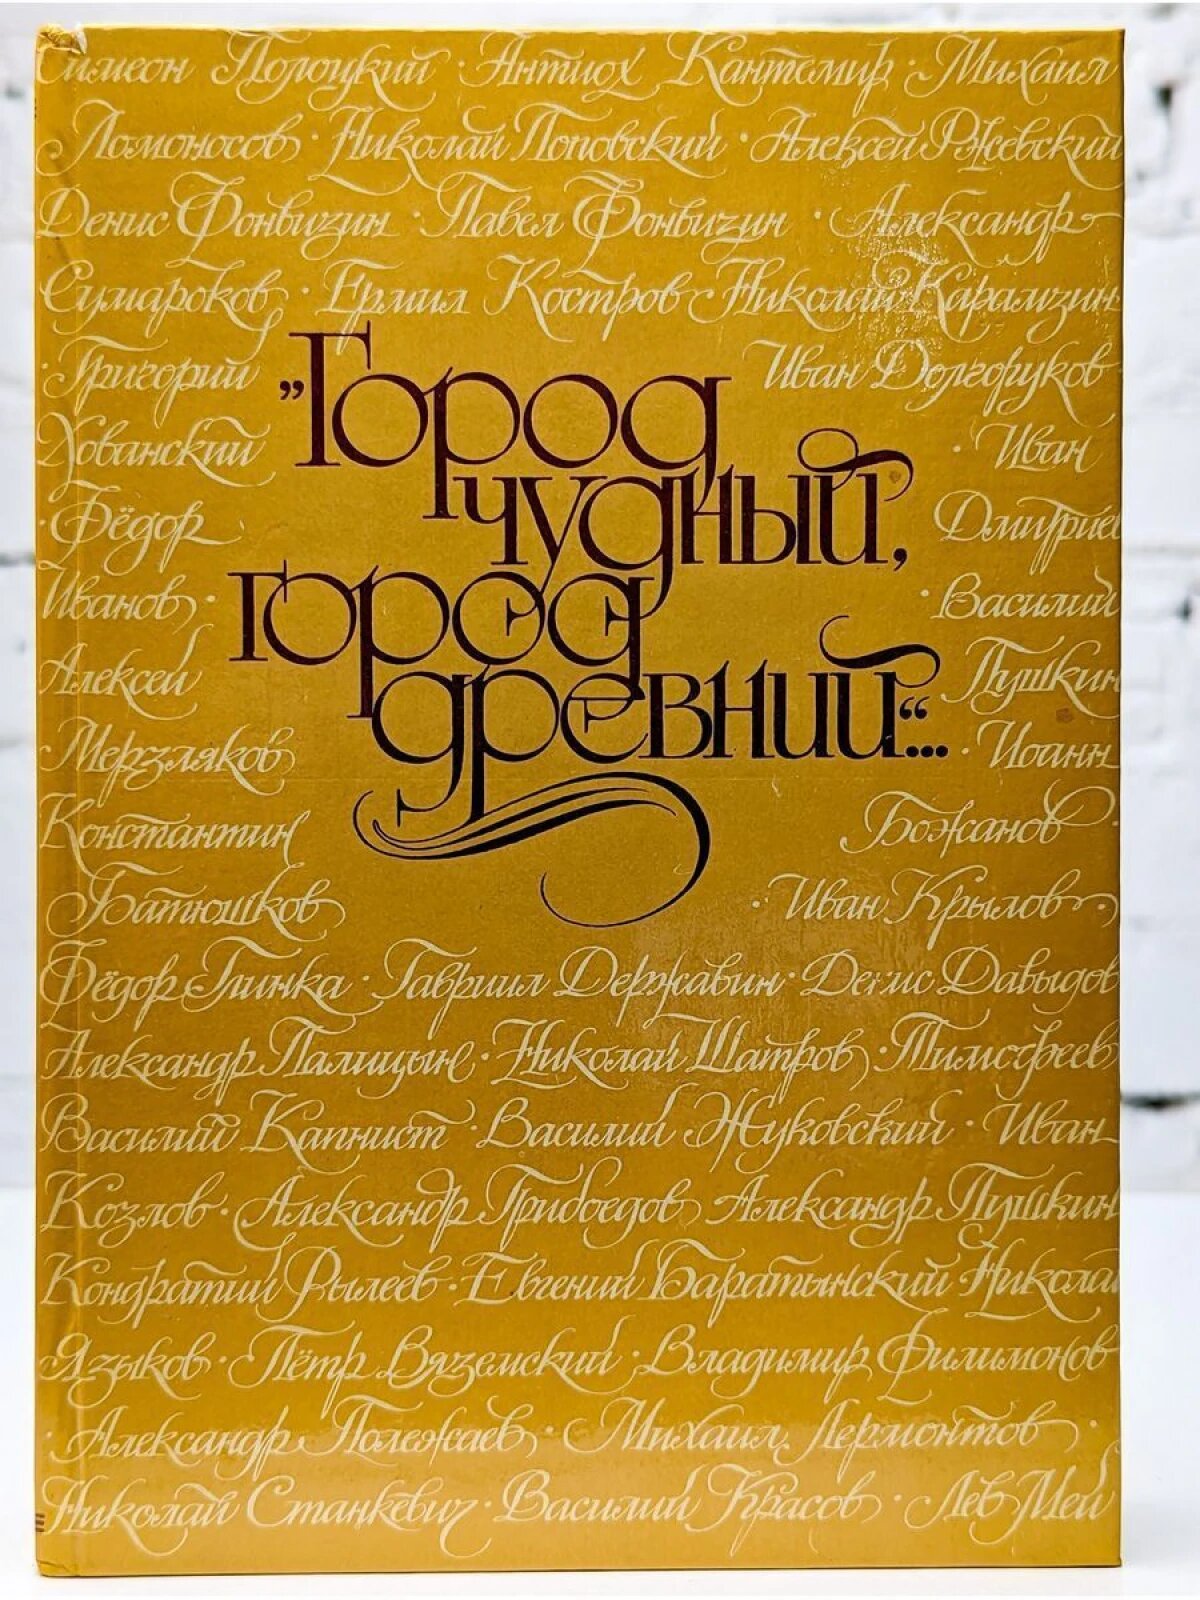 Симеон Полоцкий · Антиох Кантемир · Михаил
Ломоносов · Николай Поповский · Алексей Ржевский
Денис Фонвизин · Павел Фонвизин · Александр
Сумароков · Ермил Костров · Николай Карамзин
· Григорий Иван Долгоруков ·
Хованский · Иван
· Фёдор Дмитриев
Иванов · · Василий
Алексей Пушкин
Мерзляков · Иоанн
Константин Божанов ·
Батюшков · Иван Крылов ·
Фёдор Глинка · Гавриил Державин · Денис Давыдов
Александр Палицын · Николай Шатров · Тимофеев
Василий Капнист · Василий Жуковский · Иван
Козлов · Александр Грибоедов Александр Пушкин
Кондратий Рылеев · Евгений Баратынский · Николай
Языков · Пётр Вяземский · Владимир Филимонов
· Александр Полежаев · Михаил Лермонтов ·
Николай Станкевич · Василий Красов · Лев Мей
„Город
чудный,
город
древний“...